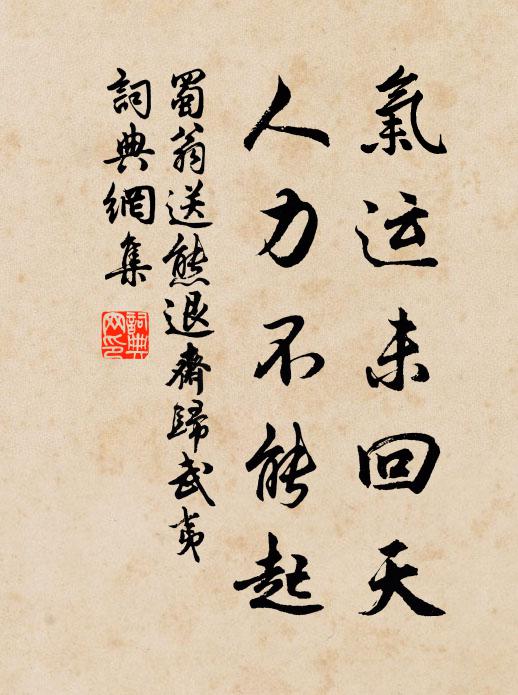 氣运未回天
人力不能起
蜀翁送熊退齋歸武夷
詞典網集
詞典網印